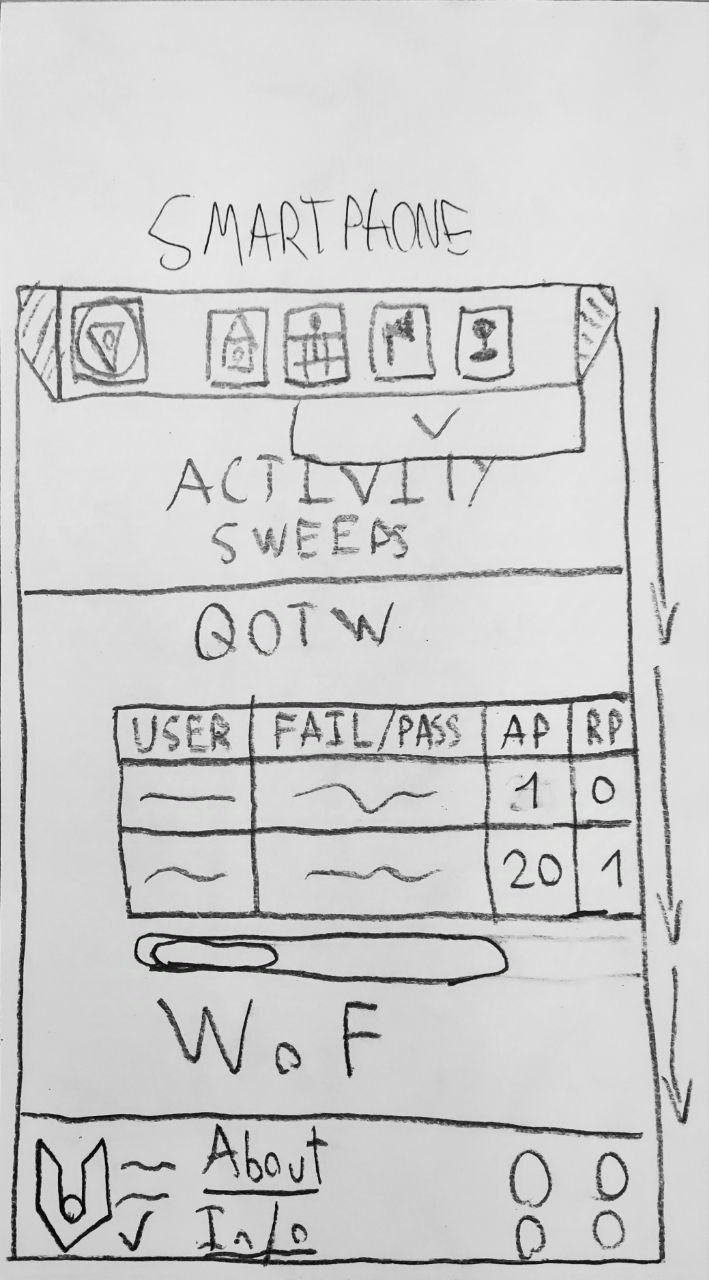 SMARTPHONE
ACTIVITY
SWEEPS
QOTW
USER FAIL/PASS AP RP
1 0
20 1
WoF
About
Info